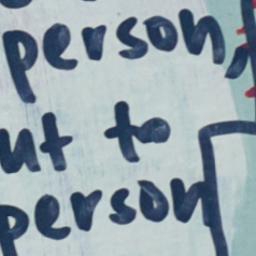 person,
ut to
person